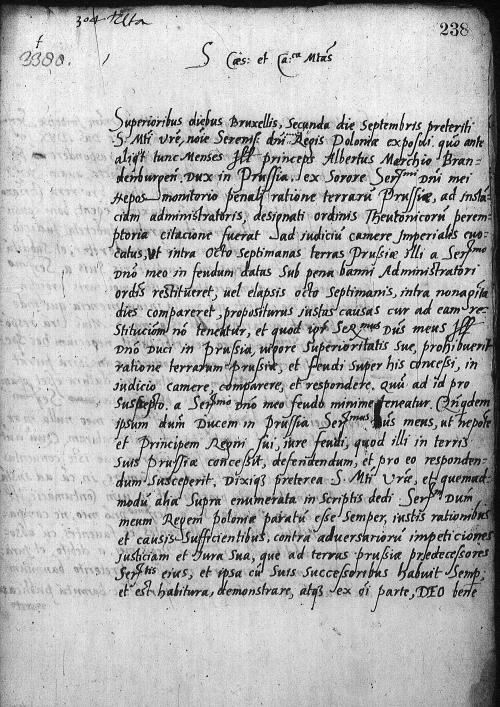 238
3380.
S Cæs: et Ca:ca Mtas
Superioribus diebus Bruxellis, Secunda die Septembris preteriti
S. Mti Vrę, noīe Serenss: dnī Regis Poloniæ exposui, quo ante
aliqt tunc Menses Illss princeps Albertus Marchio Bran-
denburgen Dux in Prussia, ex Sorore Sermi Dnī mei
Nepos monitorio penali ratione terrarū Prussiæ, ad instā-
ciam administratoris, designati ordinis Theutonicorū perem-
ptoria citacione fuerat ad iudiciū camere Imperialis evo-
catus, Ut intra Octo Septimanas terras Prussiæ illi a Sermo
Dnō meo in feudum datas Sub pena banni Administratori
ordis restitueret, uel elapsis octo Septimanis, intra nonaginta
dies compareret, propositurus iustas causas cur ad eam re-
stitucionem nō teneatur, et quod ipse Sermus Dns meus Illss
Dnō Duci in Prussia, vigore Superioritatis Suę, prohibuerit
ratione terrarum Prussiæ, et feudi super his concessi, in
iudicio camere, comparere, et respondere. Quū ad id pro
suscepto, a Sermo dnō meo feudo minime teneatur. Quīqdem
ipsum dum Ducem in Prussia Sermus Dns meus, ut nepotē
et Principem Regni sui, iure feudi, quod illi in terris
Suis Prussiæ concessit, defendendum, et pro eo responden-
dum Susceperit. Dixiqz preterea S. Mti Vrę, et quemad-
modū alia Supra enumerata in Scriptis dedi Sermum Dnum
meum Regem Poloniæ paratū esse Semper, iustis rationibus
et causis Sufficientibus, contra adversariorū impeticiones
iusticiam et Iura Sua, que ad terras prussiæ predecessores
Sertis eius, et ipsa cū Suis Successoribus habuit Semp,
et est habitura, demonstrare, atqz ex ei parte, DEO bene